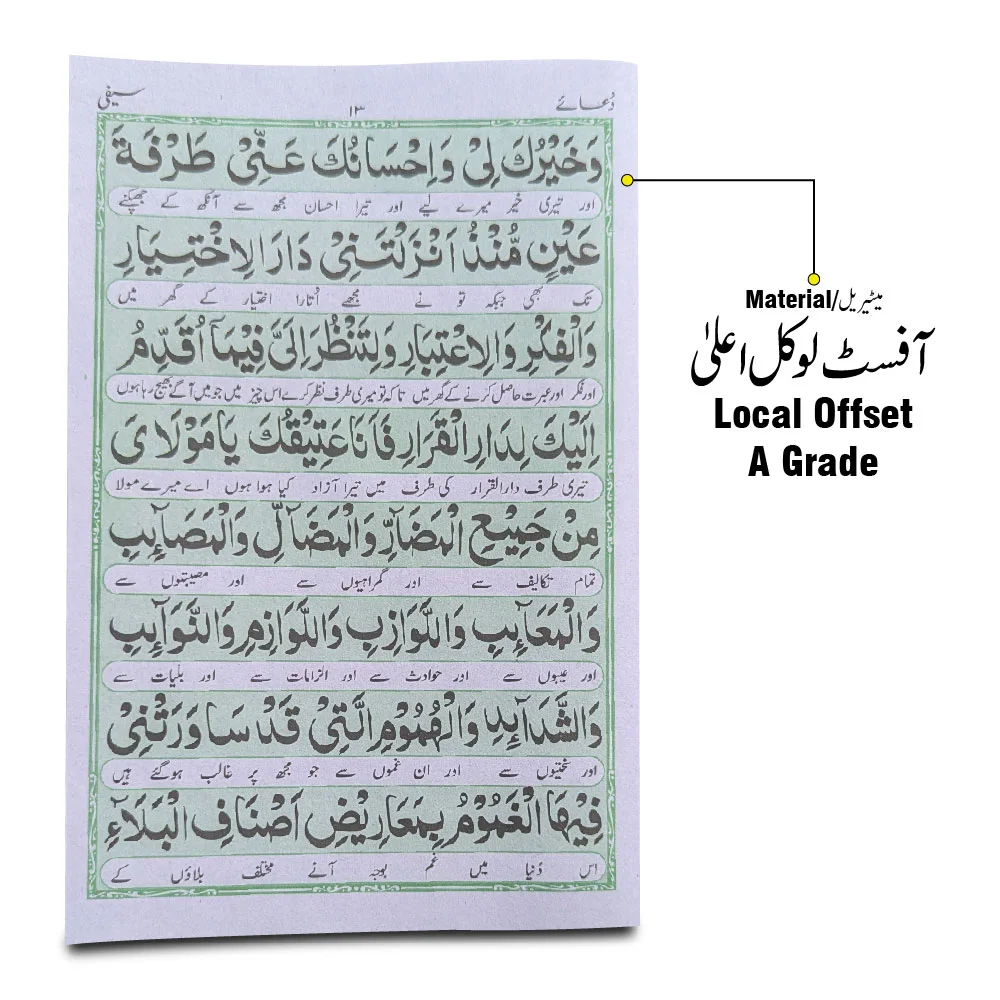 دُعائے ۱۳ سیفی
وَخَيْرُكَ لِىْ وَاِحْسَانُكَ عَنِّىْ طَرْفَةَ
اور تیری خیر میرے لیے اور تیرا احسان مجھ سے آنکھ کے جھپکنے
عَيْنٍ مُّنْذُ اَنْزَلْتَنِىْ دَارَ الْاِخْتِيَارِ
تک بھی جبکہ تو نے مجھے اُتارا اختیار کے گھر میں
وَالْفِكْرِ وَالْاِعْتِبَارِ وَلِتَنْظُرَ اِلَىَّ فِيْمَآ اُقَدِّمُ
اور فکر اور عبرت حاصل کرنے کے گھر میں تاکہ تو میری طرف نظر کرے اس چیز میں جو میں آگے بھیج رہا ہوں
اِلَيْكَ لِدَارِ الْقَرَارِ فَاَنَا عَتِيْقُكَ يَا مَوْلَاىَ
تیری طرف دارالقرار کی طرف میں تیرا آزاد کیا ہوا ہوں اے میرے مولا
مِنْ جَمِيْعِ الْمَضَآرِّ وَالْمَضَآلِّ وَالْمَصَآئِبِ
تمام تکالیف سے اور گمراہیوں سے اور مصیبتوں سے
وَالْمَعَآئِبِ وَاللَّوَازِبِ وَاللَّوَازِمِ وَالنَّوَآئِبِ
اور عیبوں سے اور حوادث سے اور الزامات سے اور بلیات سے
وَالشَّدَآئِدِ وَالْهُمُوْمِ الَّتِىْ قَدْ سَاوَرَتْنِىْ
اور سختیوں سے اور ان غموں سے جو مجھ پر غالب ہوگئے ہیں
فِيْهَا الْغَمُوْمُ بِمَعَارِيْضِ اَصْنَافِ الْبَلَآءِ
اس دُنیا میں غم بوجہ آنے مختلف بلاؤں کے
Material/میٹیریل
آفسٹ لوکل اعلیٰ
Local Offset
A Grade